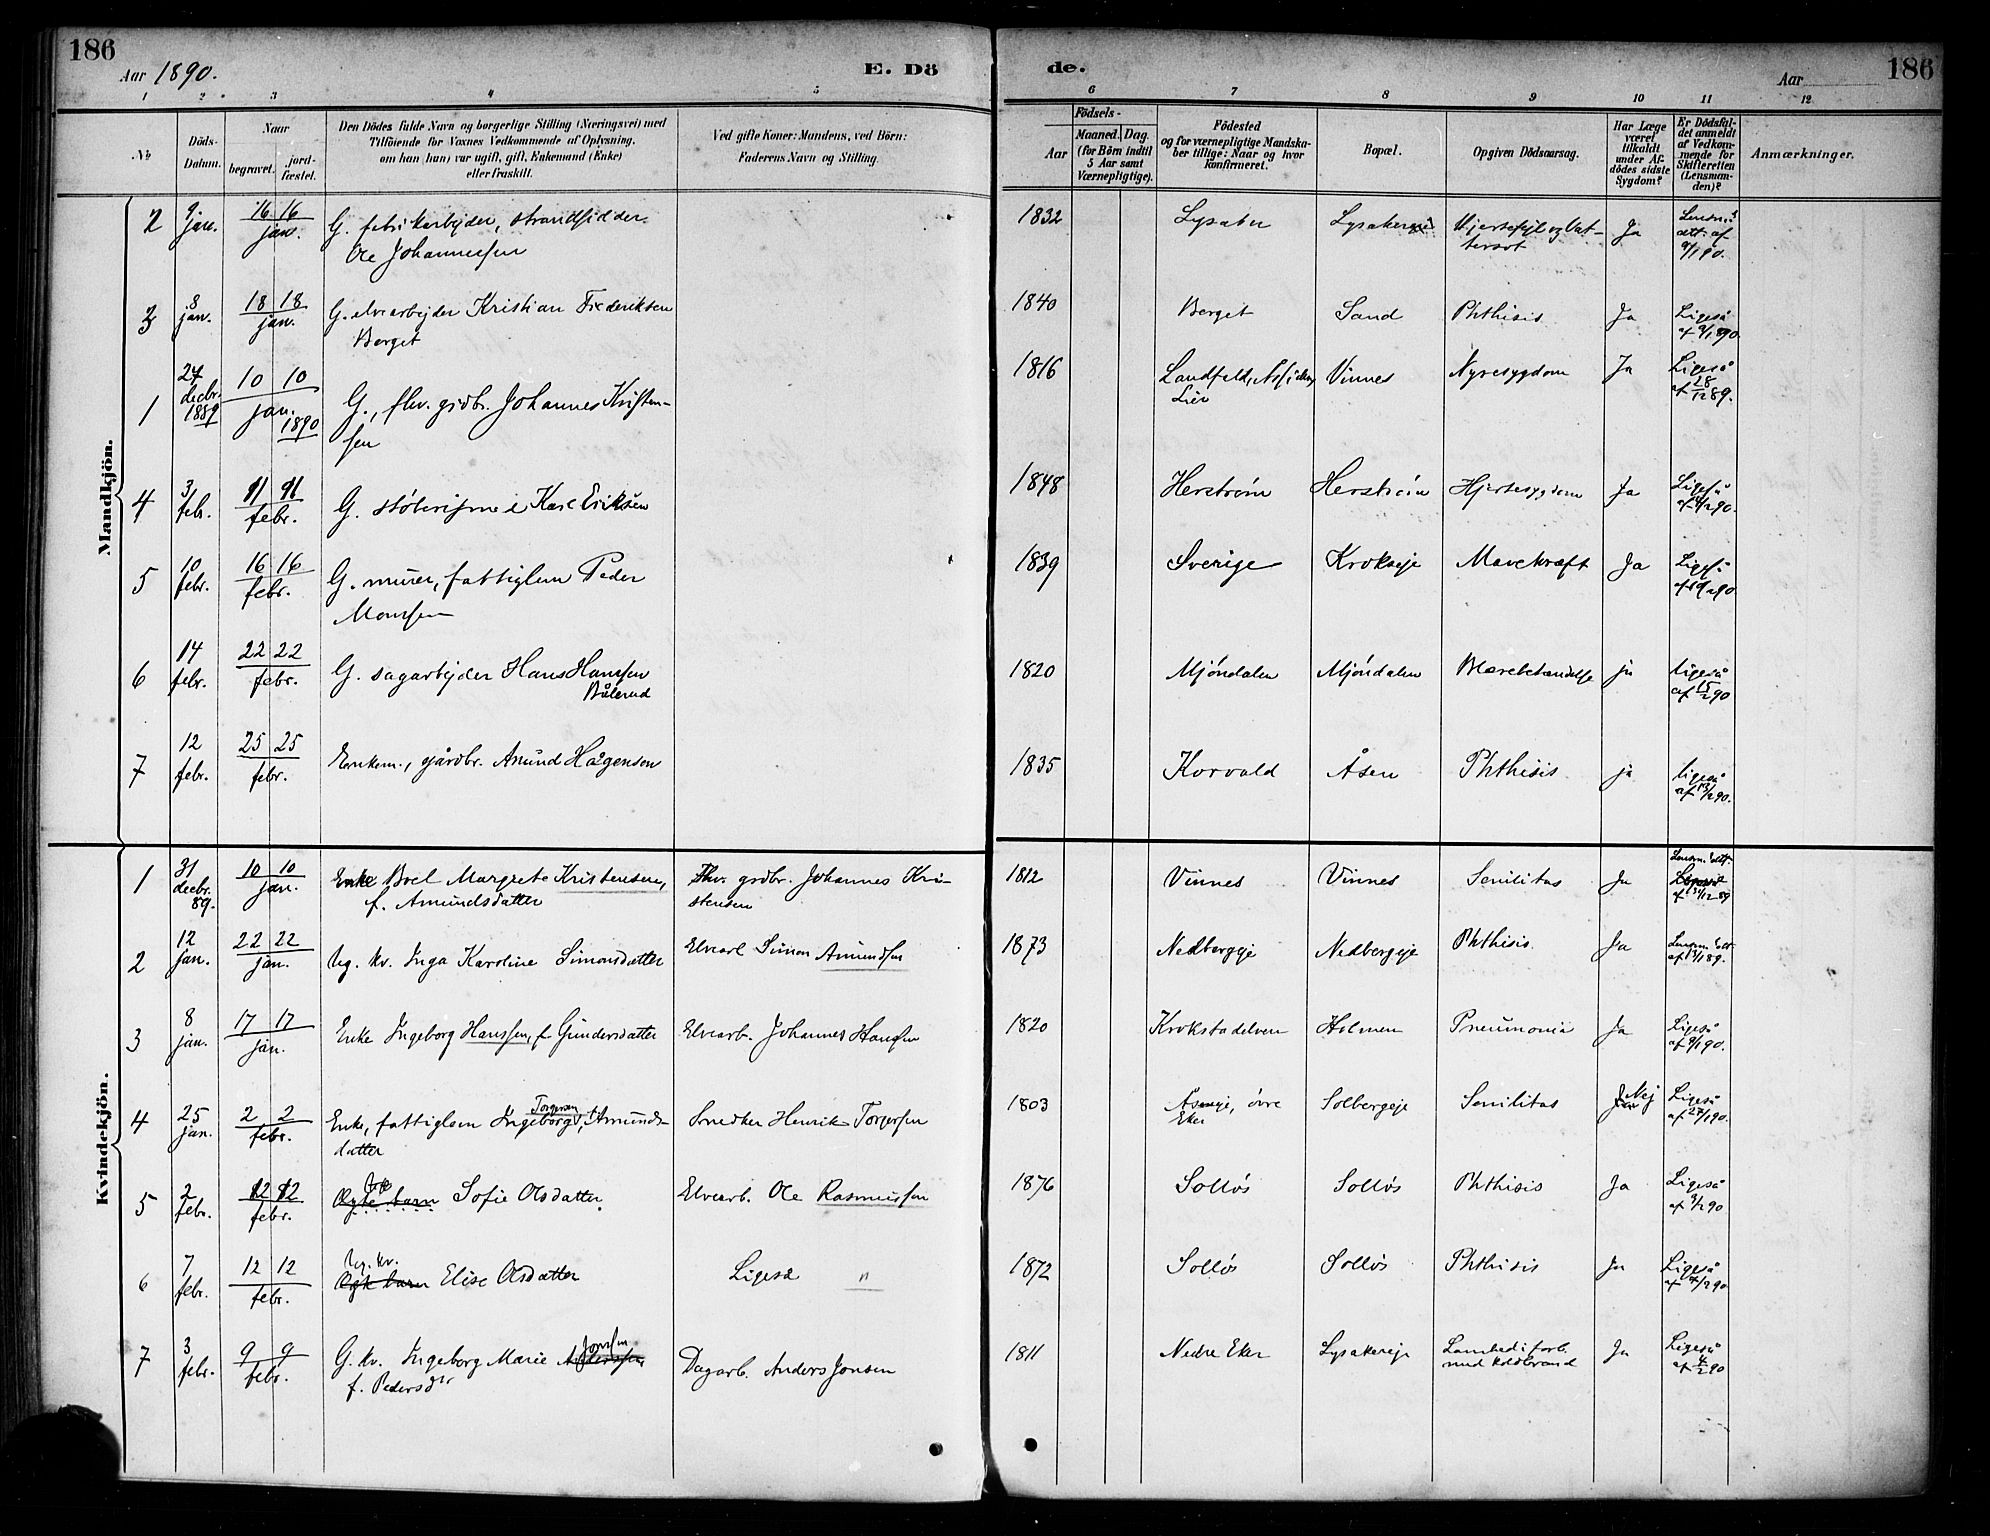 186
Aar 1890.
E. Dö
de.
Aar
186
1 2 3 4 5 6 7 8 9 10 11 12
No
Döds-
Datum.
Naar
begravet.
jord-
fæstet.
Den Dödes fulde Navn og borgerlige Stilling (Næringsvei) med
Tilföiende for Voxnes Vedkommende af Oplysning,
om han (hun) var ugift, gift, Enkemand (Enke)
eller fraskilt.
Ved gifte Koner: Mandens, ved Börn:
Faderens Navn og Stilling.
Födsels-
Aar
Maaned.
Dag.
(for Börn indtil
5 Aar samt
Værnepligtige).
Födested
og for værnepligtige Mandska-
ber tillige: Naar og hvor
konfirmeret.
Bopæl.
Opgiven Dödsaarsag.
Har Læge
været
tilkaldt
under Af-
dödes sidste
Sygdom?
Er Dödsfal-
det anmeldt
af Vedkom-
mende for
Skifteretten
(Lensman-
den)?
Anmærkninger.
Mandkjön.
2 9 jan. 16 16 jan. G. fabrikarbejder, strandsidder
Ole Johannessen
1832 Lysaker Lysakereje Hjertefejl og Vat-
tersot Ja Lensm.s
att. af
9/1 90.
3 8 jan. 18 18 jan. G. elvearbejder Kristian Frederiksen
Berget
1840 Berget Sand Phthisis Ja Ligeså
af 9/1 890.
1 27 decbr. 1889 10 10 jan. 1890 G., fhv. grdbr. Johannes Kristen-
sen
1816 Landfald,
Lier Vinnes Nyresygdom Ja Ligeså
af 28/12 89.
4 3 febr. 11 11 febr. G. støberismed Karl Eriksen
1848 Herstrøm Herstrøm Hjertesygdom Ja Ligeså
af 4/2 90.
5 10 febr. 16 16 febr. G. murer, fattiglem Peder
Monssen
1839 Sverige Krokseje Mavekræft Ja Ligeså
af 10/2 90.
6 14 febr. 22 22 febr. G. sagarbejder Hans Hanssen
Bålerud
1820 Mjøndalen Mjøndalen Blærebetændelse ja ligeså
af 15/2 90
7 12 febr. 25 25 febr. Enkem., gårdbr. Amund Hågensen
1835 Korvald Åsen Phthisis ja ligeså
af 13/2 90.
Kvindekjön.
1 31 decbr. 89. 10 10 jan. Enke Boel Margrete Kristensen,
f. Amundsdatter
Fhv. grdbr. Johannes Kri-
stensen
1812 Vinnes Vinnes Senilitas Ja Lensm. att.
af 31/12 89
2 12 jan. 22 22 jan. Ug. kv. Inga Karoline Simonsdatter
Elvearb. Simon Amundsen
1873 Nedbergeje Nedbergeje Phthisis. Ja Lensm. att.
af 13/1 89.
3 8 jan. 17 17 jan. Enke Ingeborg Hanssen, f. Gundersdatter
Elvearb. Johannes Hansen
1820 Krokstadelven Holmen Pneumoni Ja Ligeså
af 9/1 90.
4 25 jan. 2 2 febr. Enke, fattiglem Ingeborg Torgersen, f. Amunds-
datter
Snedker Henrik Torgersen
1803 Åseneje, øvre
Eker Solbergeje Senilitas Nej Ligeså
af 27/1 90.
5 2 febr. 12 12 febr. Ægte barn Sofie Olsdatter.
Elvearb. Ole Rasmussen
1876 Solløs Solløs Phthisis Ja Ligeså
af 3/2 90
6 7 febr. 12 12 febr. Ug. kv.
Ægte barn Elise Olsdatter
Ligeså "
1872 Solløs Solløs Phthisis Ja Ligeså
7 3 febr. 9 9 febr. G. kv. Ingeborg Marie Jonsen
f. Pedersdtr
Dagarb. Anders Jonsen
1811 Nedre Eker Lysakereje Lamhed i forb.
med koldbrand Ja Ligeså
af 4/2 90